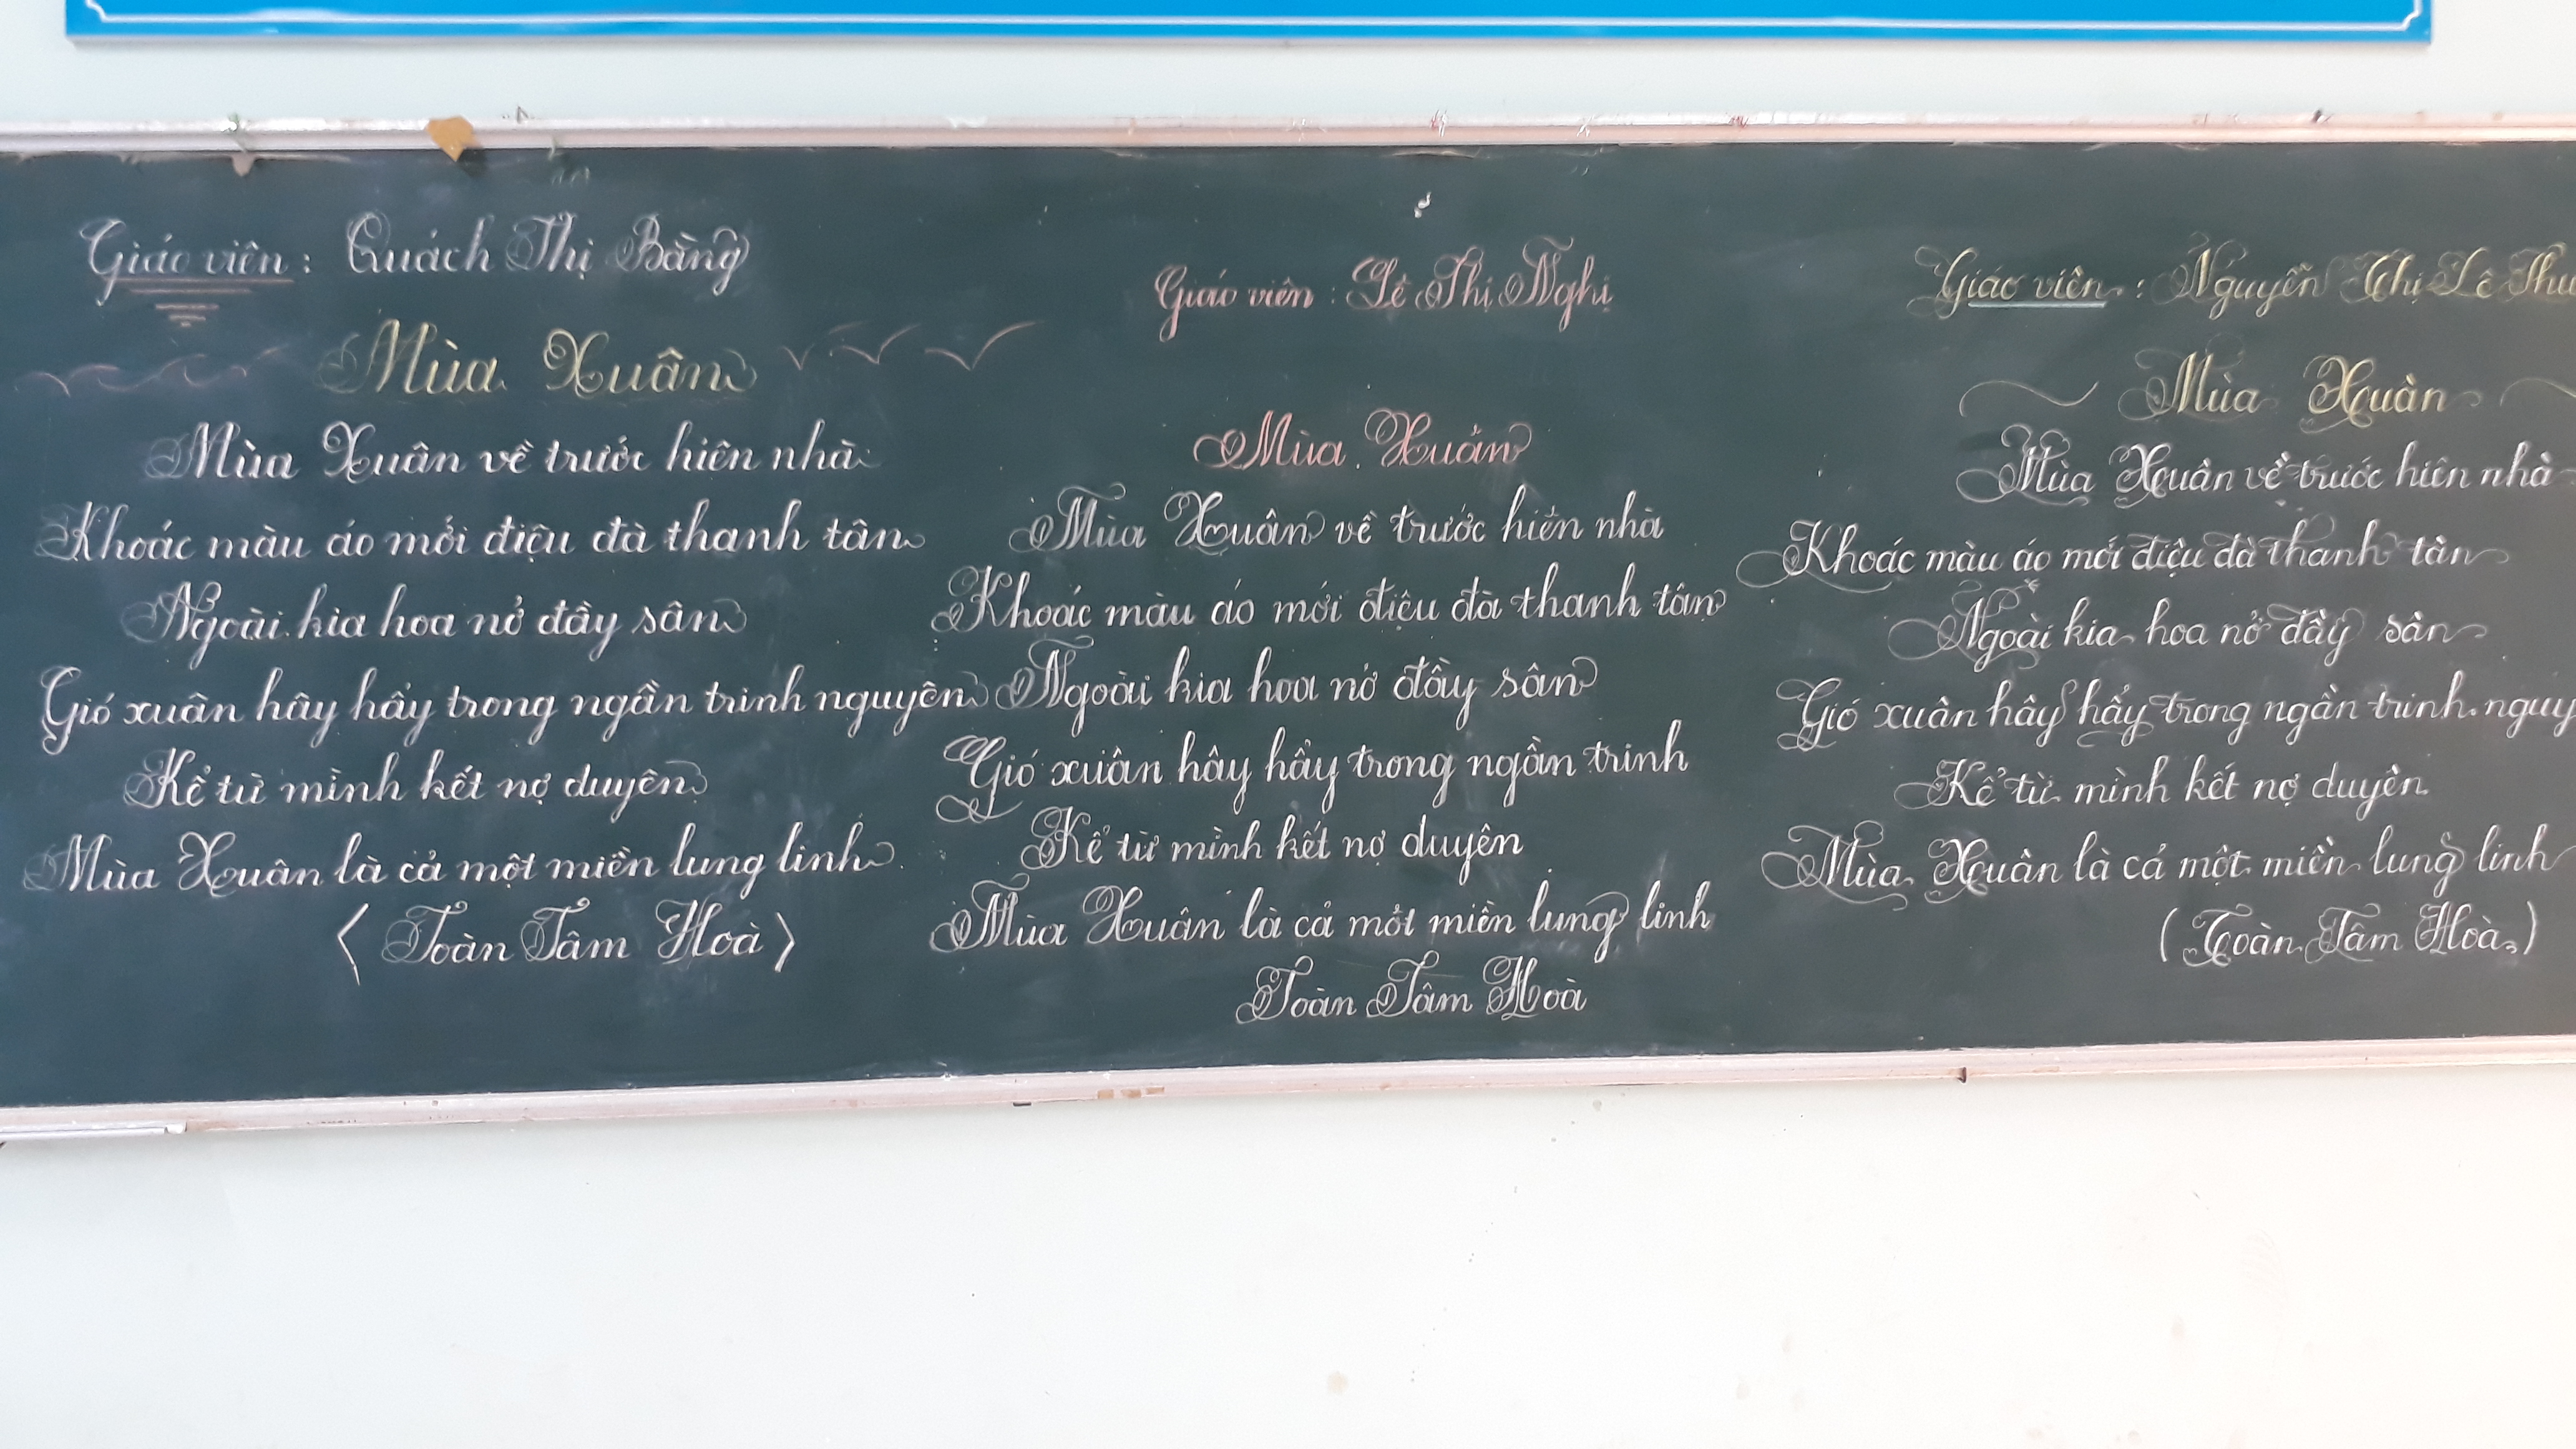 Giáo viên: Quách Thị Bằng
Mùa Xuân
Mùa Xuân về trước hiên nhà
Khoác màu áo mới điệu đà thanh tân
Ngoài kia hoa nở đầy sân
Gió xuân hây hẩy trong ngần trinh nguyên
Kể từ mình kết nợ duyên
Mùa Xuân là cả một miền lung linh
〈 Toàn Tâm Hoà 〉
Giáo viên: Lê Thị Nghị
Mùa Xuân
Mùa Xuân về trước hiên nhà
Khoác màu áo mới điệu đà thanh tân
Ngoài kia hoa nở đầy sân
Gió xuân hây hẩy trong ngần trinh
Kể từ mình kết nợ duyên
Mùa Xuân là cả một miền lung linh
Toàn Tâm Hoà
Giáo viên: Nguyễn Thị Lê
Mùa Xuân
Mùa Xuân về trước hiên nhà
Khoác màu áo mới điệu đà thanh tân
Ngoài kia hoa nở đầy sân
Gió xuân hây hẩy trong ngần trinh
Kể từ mình kết nợ duyên
Mùa Xuân là cả một miền lung linh
(Toàn Tâm Hoà)